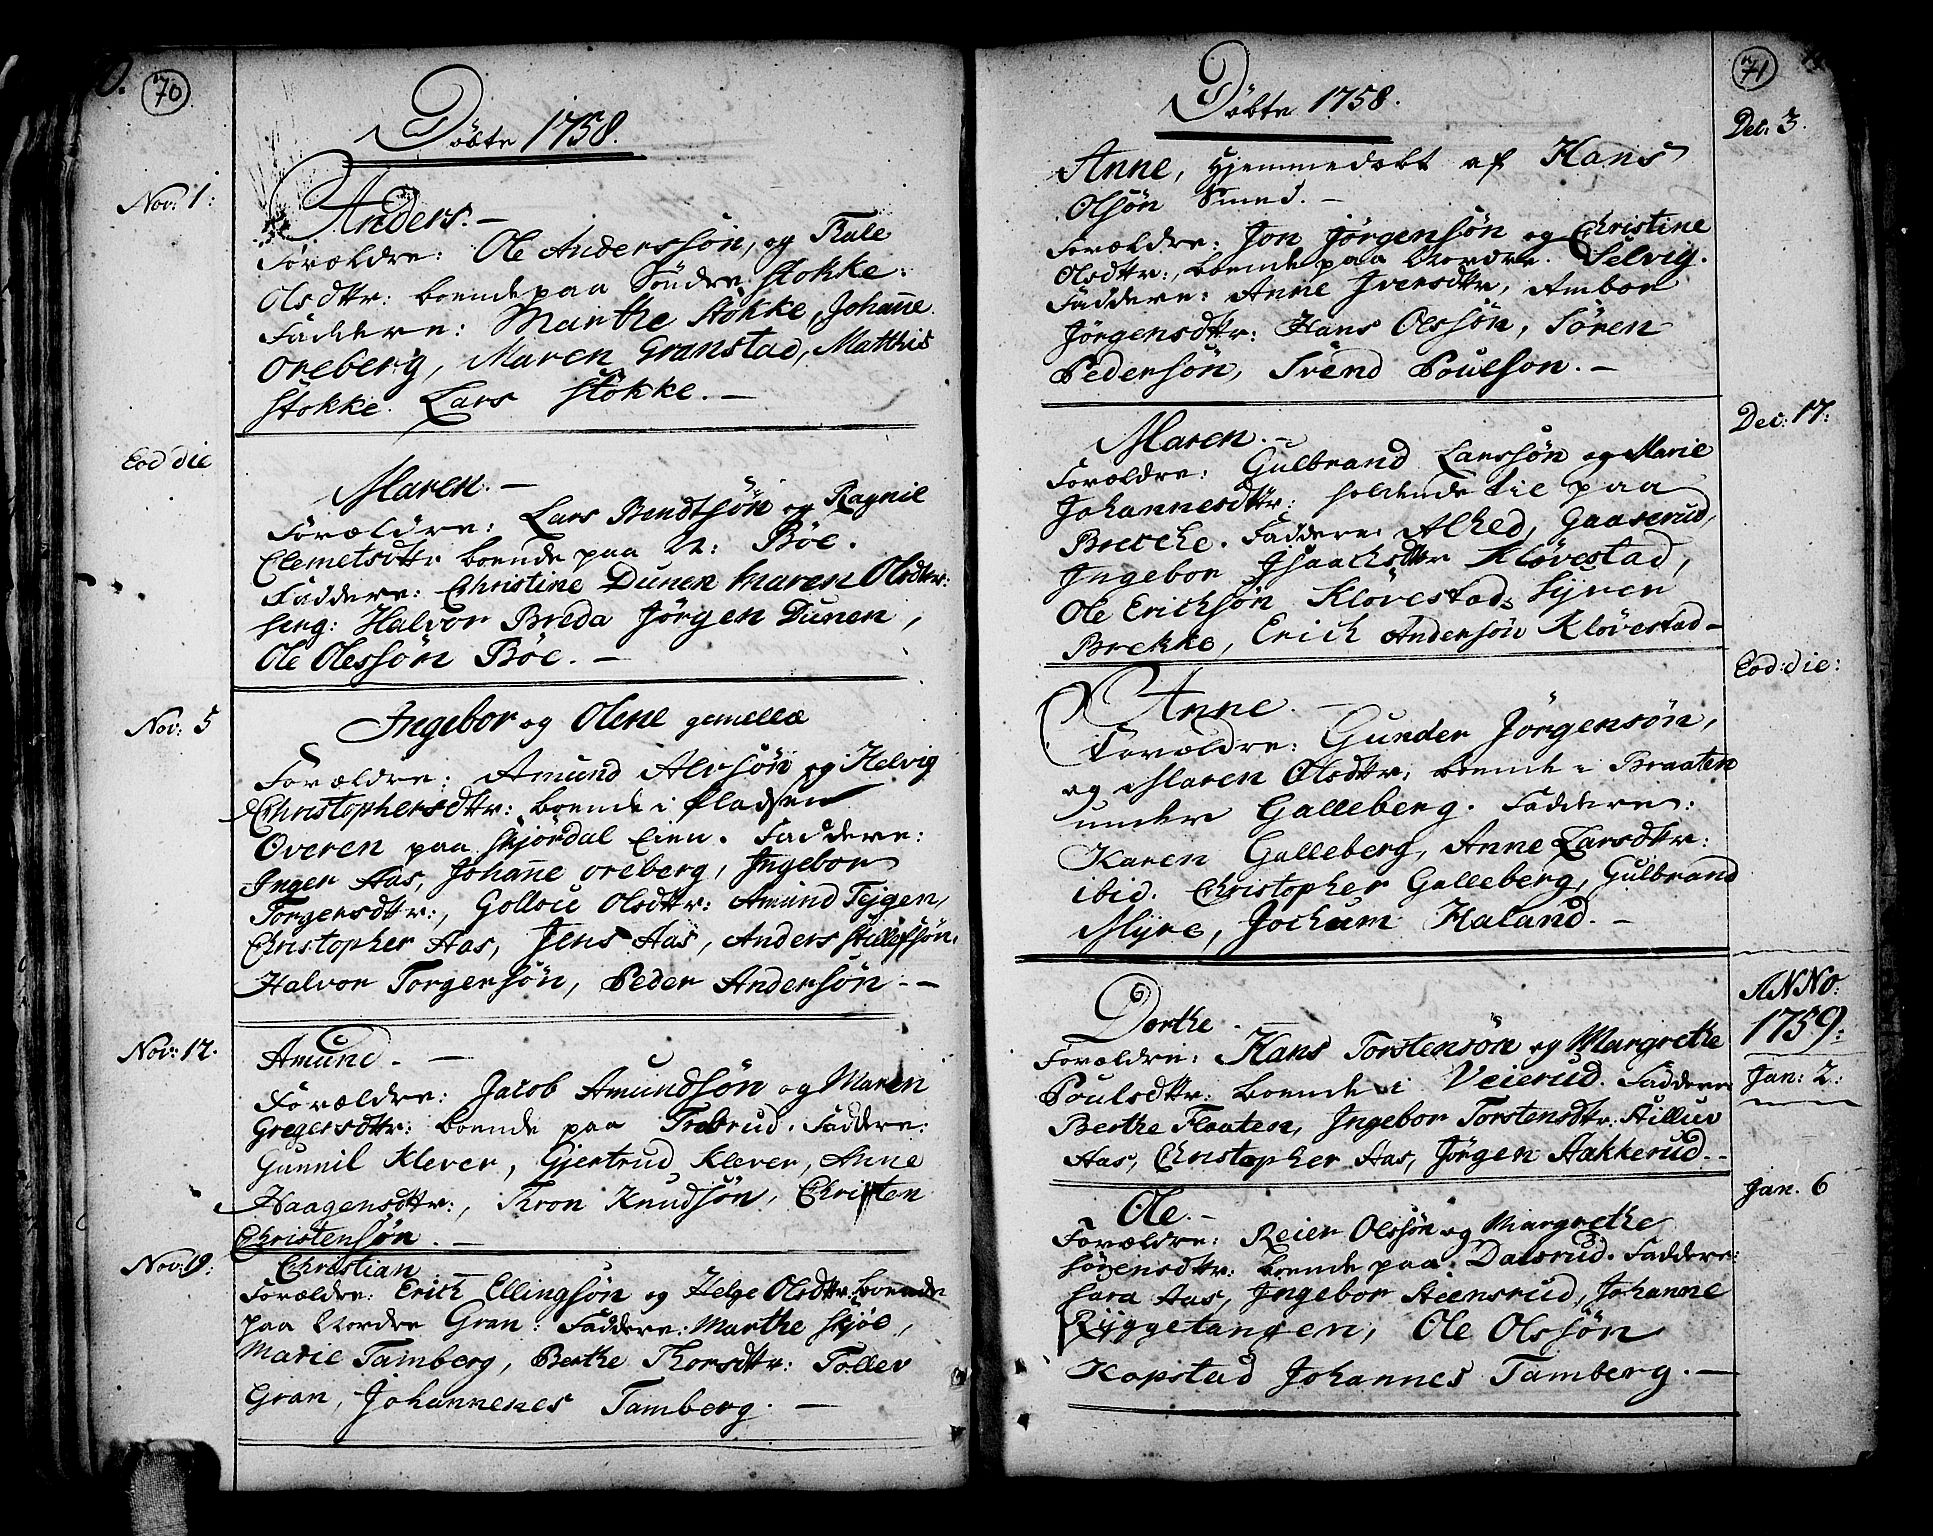 70
Døbte 1758.
Nov: 1:
Anders. –
Forældre: Ole Anderssøn, og Kale
Olsdttr: boende paa Søndre Stokke:
Faddere: Marthe Støkke, Johañe
Oreberg, Maren Granstad, Matthis
Støkke. Lars Støkke. –
Eod die
Maren. –
Forældre: Lars Bendtsøn og Ragnil
Clemetsdttr boende paa N: Bøe.
Faddere: Christine Dunen Maren Olsdttr:
Halvor Breda Jørgen Dunen,
Ole Olessøn Bøe. –
Nov: 5
Ingebor og Olene gemellæ
Forældre: Amund Alvsøn og Helvig
Christophersdttr: boende i Pladsen
Overen paa Skjørdal Eien. Faddere:
Inger Aas, Johañe Oreberg, Ingebor
Torgersdttr:, Gollou Olsdttr: Amund Tejgen,
Christopher Aas, Jens Aas, Anders Stillefsøn.
Halvor Torgersøn, Peder Andersøn. –
Nov: 12.
Amund. –
Forældre: Jacob Amundsøn og Maren
Gregersdttr: boende paa Trobrud. Faddere:
Gunnil Klever, Gjertrud Klever, Anne
Haagensdttr:, Tron Knudsøn, Christen
Christensøn. –
Nov: 19:
Christian –
Forældre: Erich Ellingsøn og Helge Olsdttr: boende
paa Nordre Gran: Faddere: Marthe Skjøe,
Marie Tamberg, Berthe Thorsdttr: Tollev
Gran, Johannenes Tamberg. –
71
Døbte 1758.
Dec: 3.
Anne, Hjemmedøbt af Hans
Olsøn Smed. –
Forældre: Jon Jørgensøn og Christine
Olsdttr:, boende paa Nordre Selvig.
Faddere: Anne Iversdttr, Ambor
Jørgensdttr: Hans Olssøn, Søren
Pedersøn, Svend Poulson. –
Dec: 17:
Maren. –
Forældre: Gulbrand Larssøn og Marie
Johannesdttr: holdende til paa
Breche. Faddere: Alhed, Gaaserud,
Ingebor Isaachsdttr Kløvestad,
Ole Erichsøn Kløvestad, Syver
Brekke, Erich Andersøn Kløvestad –
Eod: die:
Anne. –
Forældre: Gunder Jørgensøn,
og Maren Olsdttr: boende i Braaten
under Galleberg. Faddere:
Karen Galleberg, Anne Larsdttr:
ibid. Christopher Galleberg, Gulbrand
Myre, Jochum Haland. –
ANNo:
1759:
Jan: 2:
Dorthe.
Forældre: Hans Torstensøn og Margrethe
Poulsdttr: boende i Veierud. Faddere
Berthe Flaaten, Ingebor Torstensdttr: Aillus
Aas, Christopher Aas, Jørgen Aakkerud. –
Jan. 6
Ole. –
Forældre: Reier Olssøn og Margrethe
Sørensdttr: boende paa Dalsrud. Faddere:
Sara Aas, Ingebor Steensrud, Johanne
Ryggetangen, Ole Olssøn
Kopstad Johannes Tamberg. –